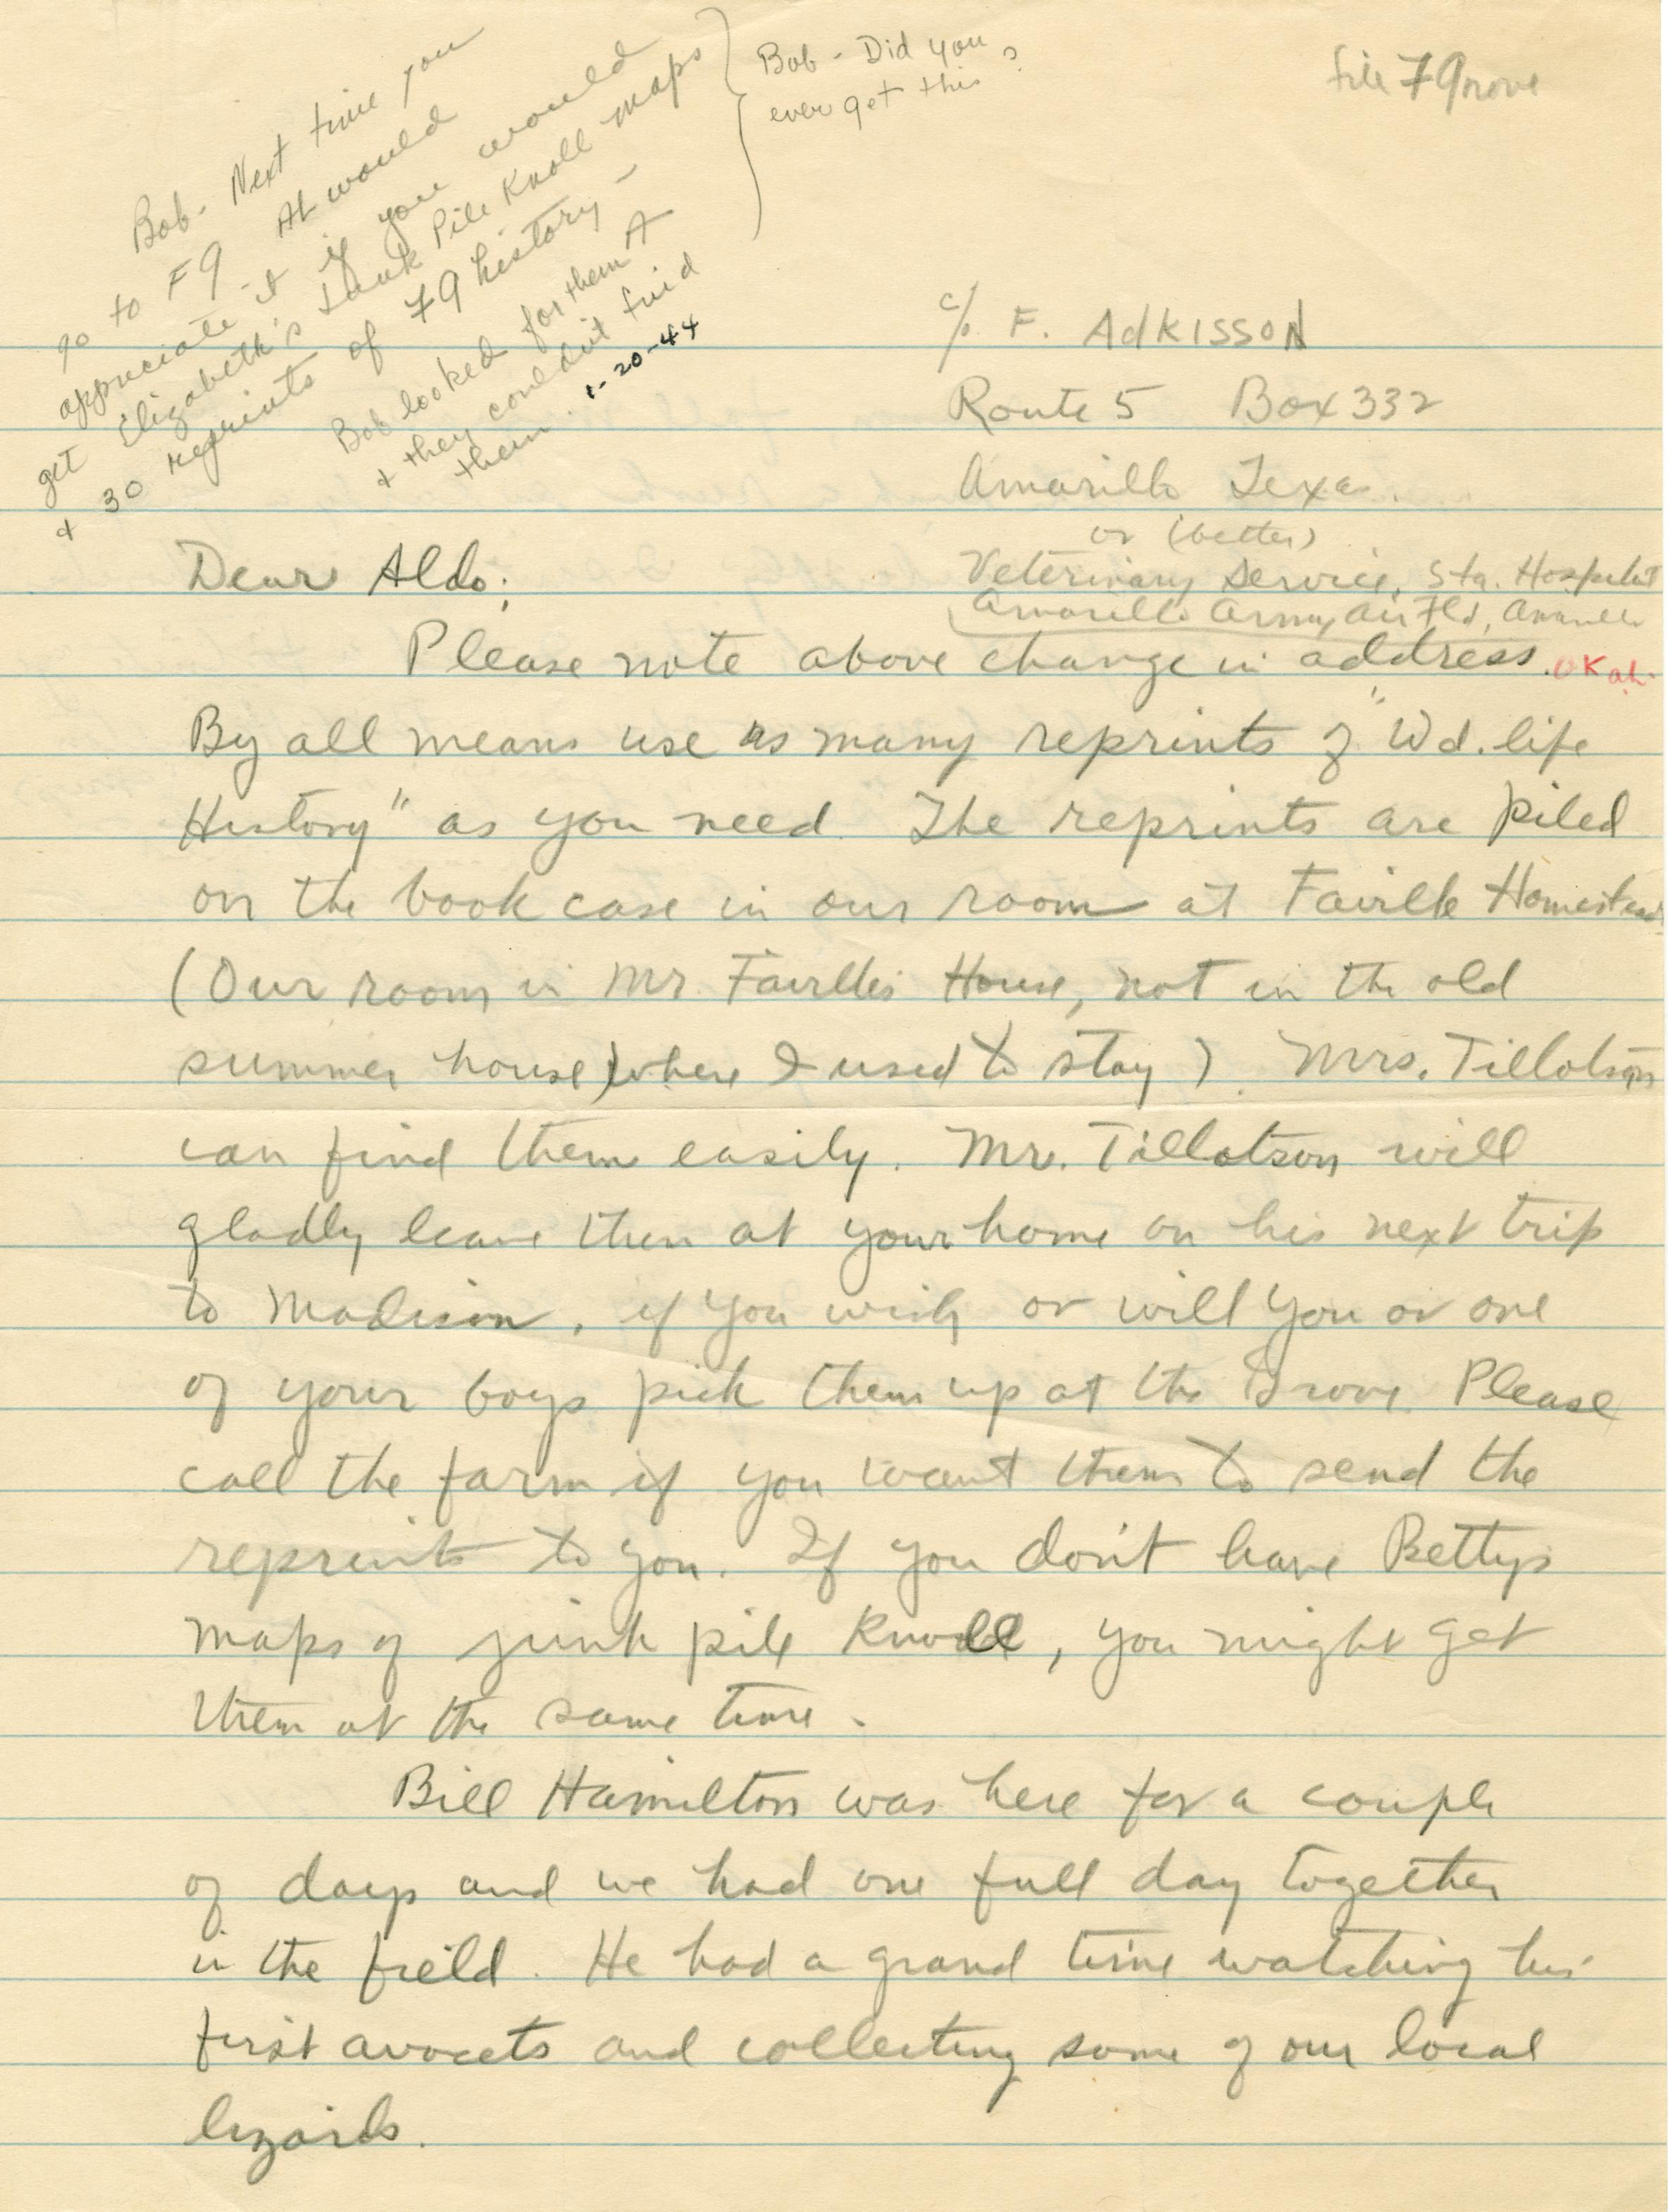 Bob - Next time you
go to F9 - AL would
appreciate it if you would
get Elizabeth's Junk Pile Knoll maps
+ 30 reprints of F9 history -
Bob looked for them A
+ they couldn't find
them. 1-20-44
Bob - Did you
ever get this?
file F9rove
c/o F. Adkisson
Route 5 Box 332
Amarillo Texas.
or (better)
Veterinary Service, Sta. Hospital
Amarillo Army Air Fld, Amarillo
Dear Aldo;
Please note above change in address. OK
By all means use as many reprints of "Wd. life
History" as you need. The reprints are piled
on the book case in our room at Faville Homestead
(Our room in Mr. Faville's House, not in the old
summer house) where I used to stay). Mrs. Tillotson
can find them easily. Mr. Tillotson will
gladly leave them at your home on his next trip
to Madison, if you wish or will you or one
of your boys pick them up at the Grove. Please
call the farm if you want them to send the
reprints to you. If you don't have Bettys
maps of junk pile Knoll, you might get
them at the same time.
Bill Hamilton was here for a couple
of days and we had one full day together
in the field. He had a grand time watching his
first avocets and collecting some of our local
lizards.